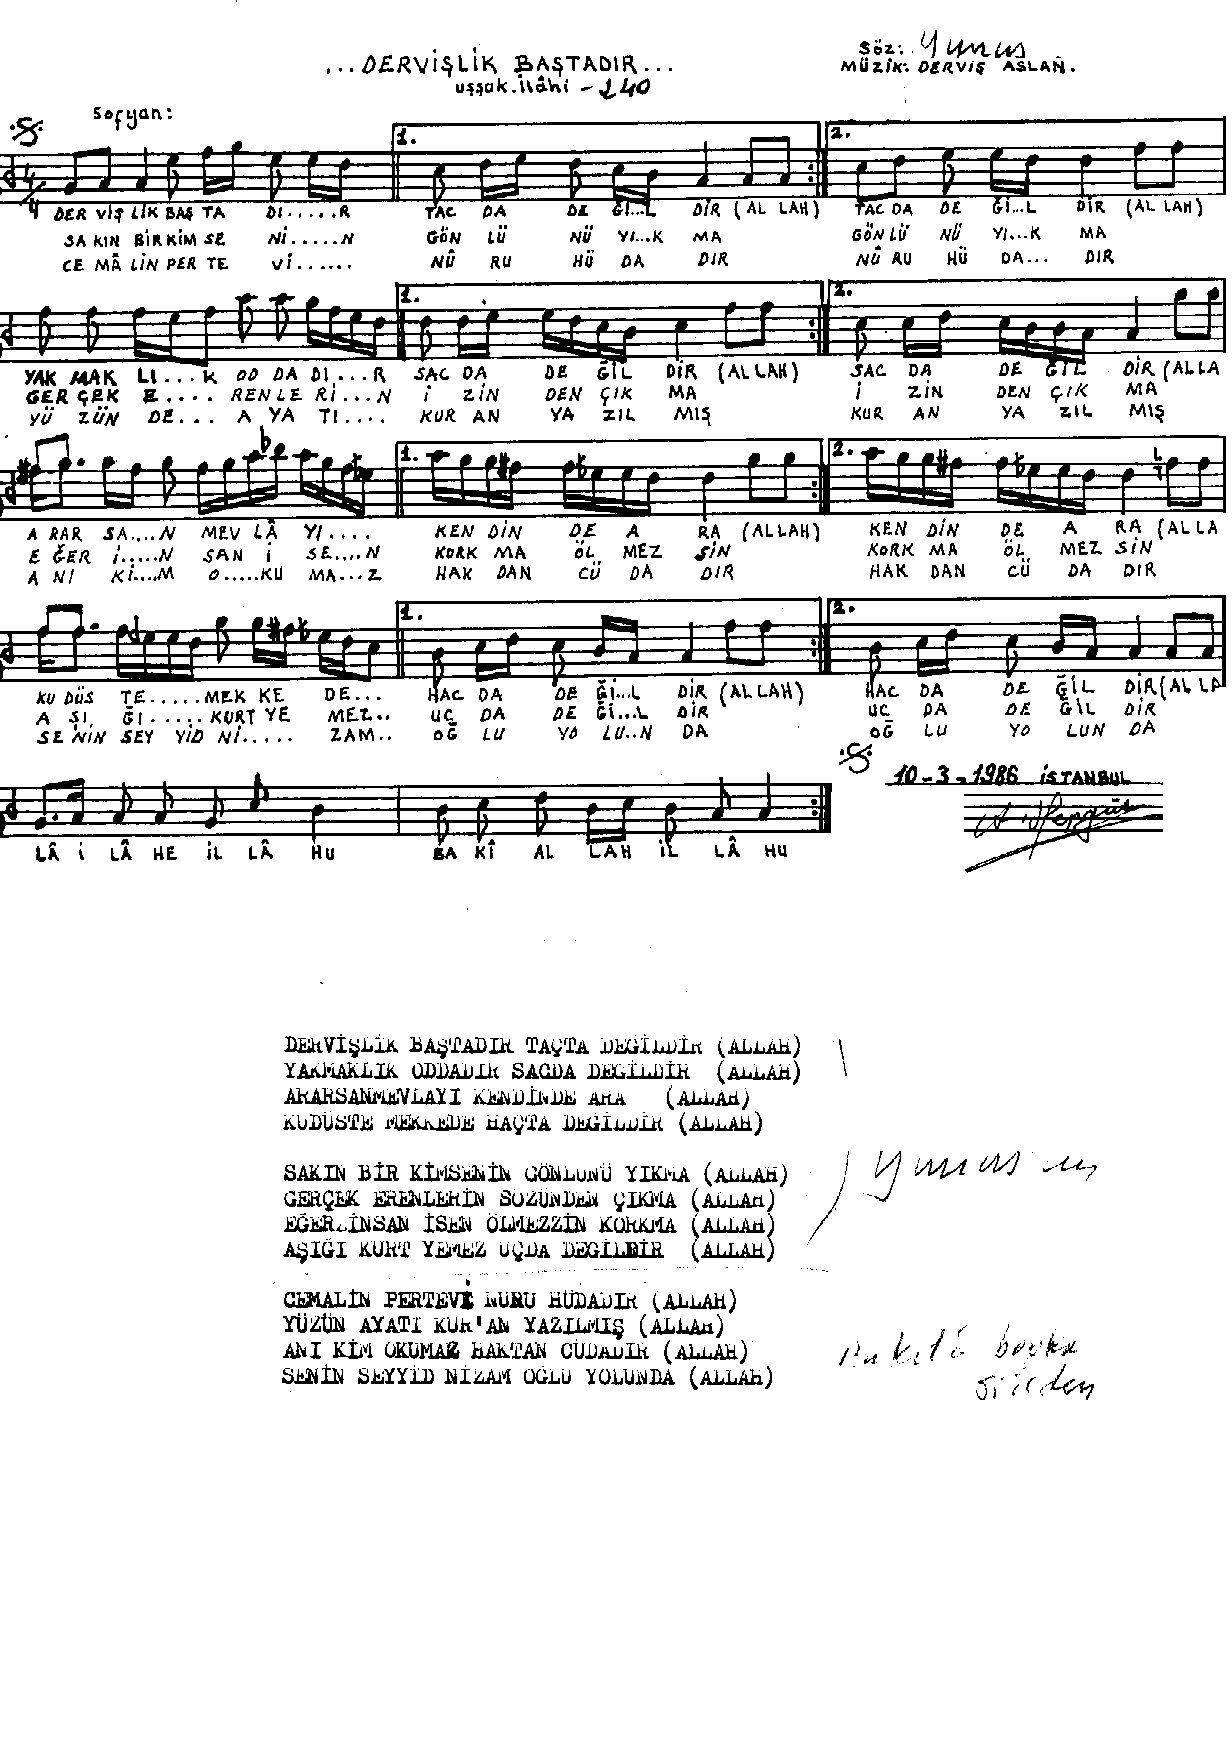 ...DERVİŞLİK BAŞTADIR...
Söz: Yunus
MÜZİK: DERVİŞ ASLAN.
uşşak. ilâhi - 240
Sofyan:
1. 2.
4/4
DER VİŞ LİK BAŞ TA DI......R TAC DA DE Ğİ...L DİR (AL LAH) TAC DA DE Ğİ...L DİR (AL LAH)
SA KIN BİR KİM SE Nİ.....N GÖN LÜ NÜ YI...K MA GÖN LÜ NÜ YI...K MA
CE MÂ LİN PER TE Vİ...... NÛ RU HÜ DA DIR NÛ RU HÜ DA... DIR
1. 2.
YAK MAK LI...K OD DA DI...R SAC DA DE ĞİL DİR (ALLAH) SAC DA DE ĞİL DİR (ALLA
GER ÇEK E..... REN LE Rİ...N İ ZİN DEN ÇIK MA İ ZİN DEN ÇIK MA
YÜ ZÜN DE... A YA TI.... KUR AN YA ZIL MIŞ KUR AN YA ZIL MIŞ
1. 2.
A RAR SA...N MEV LÂ YI.... KEN DİN DE A RA (ALLAH) KEN DİN DE A RA (ALLA
E ĞER İ.....N SAN İ SE....N KORK MA ÖL MEZ SİN KORK MA ÖL MEZ SİN
A NI Kİ...M O.....KU MA...Z HAK DAN CÜ DA DIR HAK DAN CÜ DA DIR
1. 2.
KU DÜS TE.....MEK KE DE... HAC DA DE Ğİ...L DİR (ALLAH) HAC DA DE ĞİL DİR(AL LA
A ŞI ĞI......KURT YE MEZ.. UÇ DA DE Ğİ...L DİR UÇ DA DE ĞİL DİR
SE NİN SEY YİD Nİ..... ZAM.. OĞ LU YO LU..N DA OĞ LU YO LUN DA
10-3-1986 İSTANBUL
LÂ İ LÂ HE İL LÂ HU BA KÎ AL LAH İL LÂ HU
DERVİŞLİK BAŞTADIR TAÇTA DEĞİLDİR (ALLAH)
YAKMAKLIK ODDADIR SACDA DEĞİLDİR (ALLAH)
ARARSANMEVLAYI KENDİNDE ARA (ALLAH)
KUDÜSTE MEKKEDE HAÇTA DEĞİLDİR (ALLAH)
SAKIN BİR KİMSENİN GÖNLÜNÜ YIKMA (ALLAH)
GERÇEK ERENLERİN SÖZÜNDEN ÇIKMA (ALLAH)
EĞER.İNSAN İSEN ÖLMEZZİN KORKMA (ALLAH)
AŞIĞI KURT YEMEZ UÇDA DEĞİLDİR (ALLAH)
Yunus'un
CEMALİN PERTEVİ NURU HÜDADIR (ALLAH)
YÜZÜN AYATI KUR'AN YAZILMIŞ (ALLAH)
ANI KİM OKUMAZ HAKTAN CÜDADIR (ALLAH)
SENİN SEYYİD NİZAM OĞLU YOLUNDA (ALLAH)